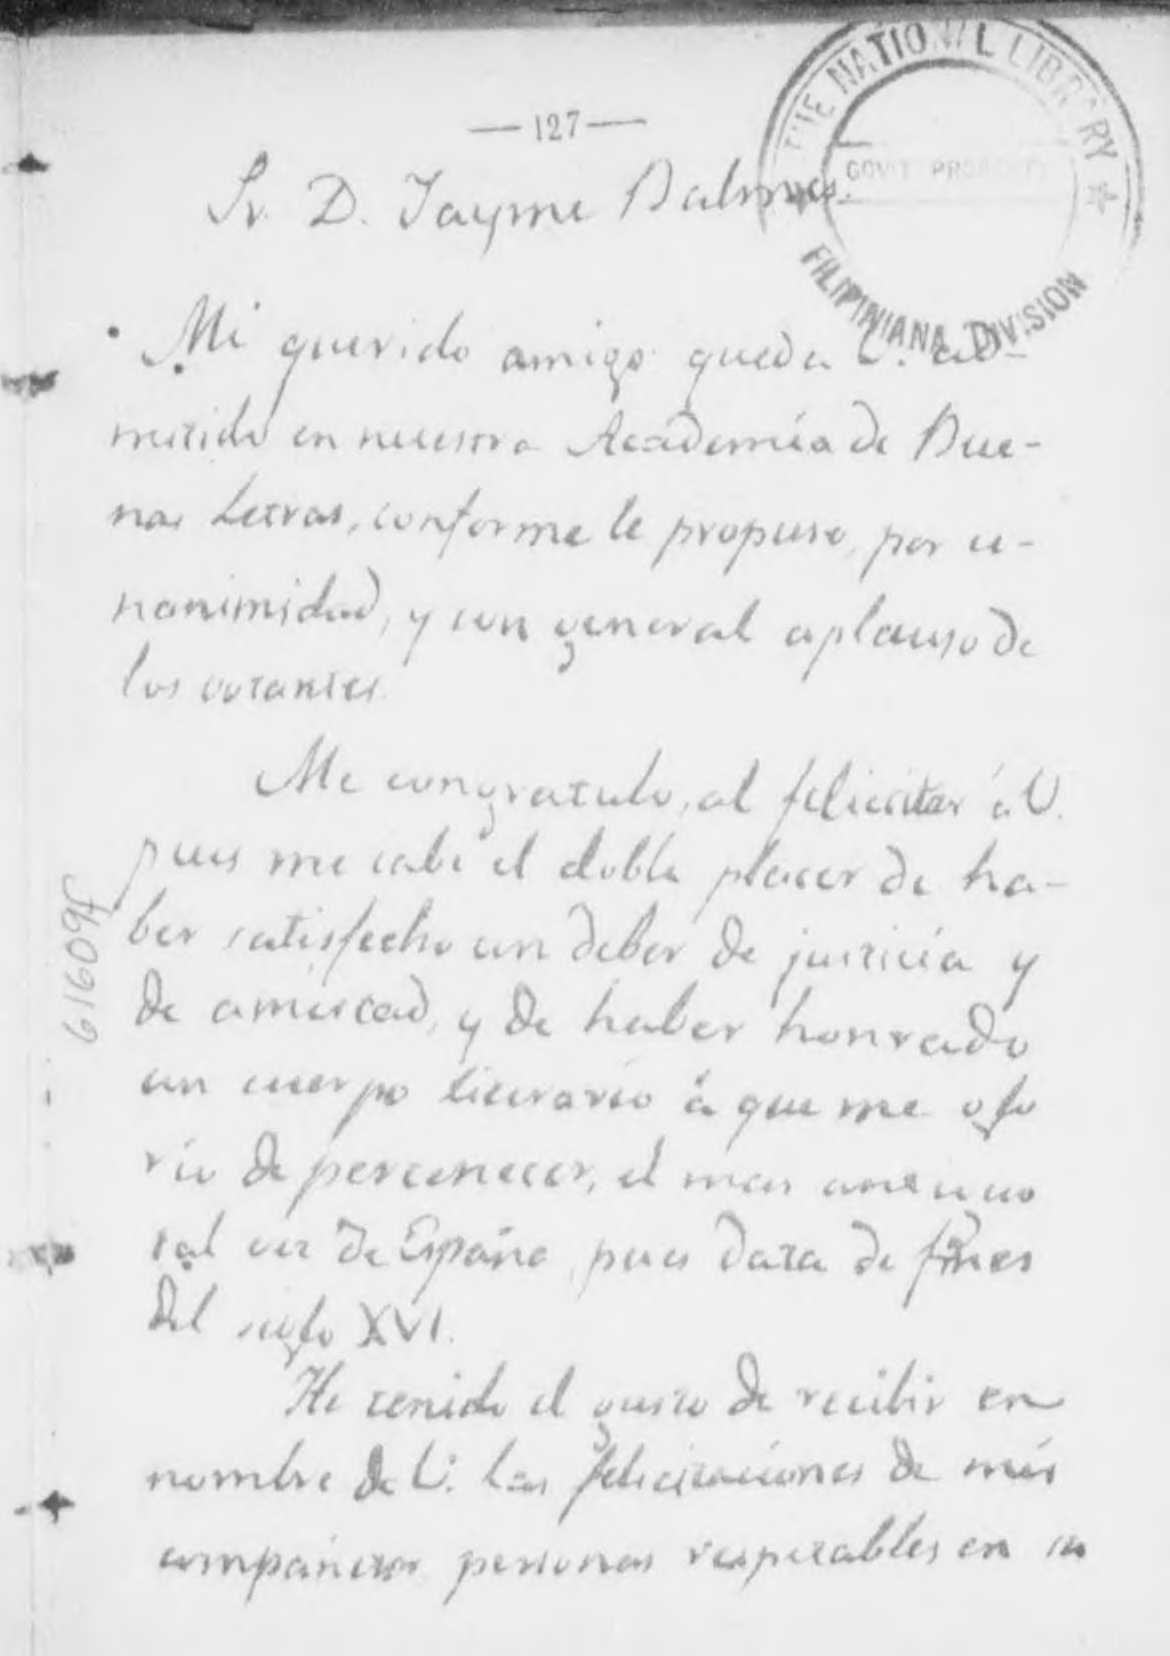 THE NATIONAL LIBRARY
GOV'T PROPERTY
FILIPINIANA DIVISION
— 127 —
Sr. D. Jayme Balmes.
Mi querido amigo queda V. ad-
mitido en nuestra Academia de Bue-
nas Letras, conforme le propuse, por u-
nanimidad, y con general aplauso de
los votantes.
Me congratulo, al felicitar á V.
pues me cabe el doble placer de ha-
ber satisfecho un deber de justicia y
de amistad, y de haber honrado
un cuerpo literario á que me glo
rio de pertenecer, el mas antiguo
tal vez de España, pues data de fines
del siglo XVI.
He tenido el gusto de recibir en
nombre de V. las felicitaciones de mis
compañeros personas respetables en su
61609f